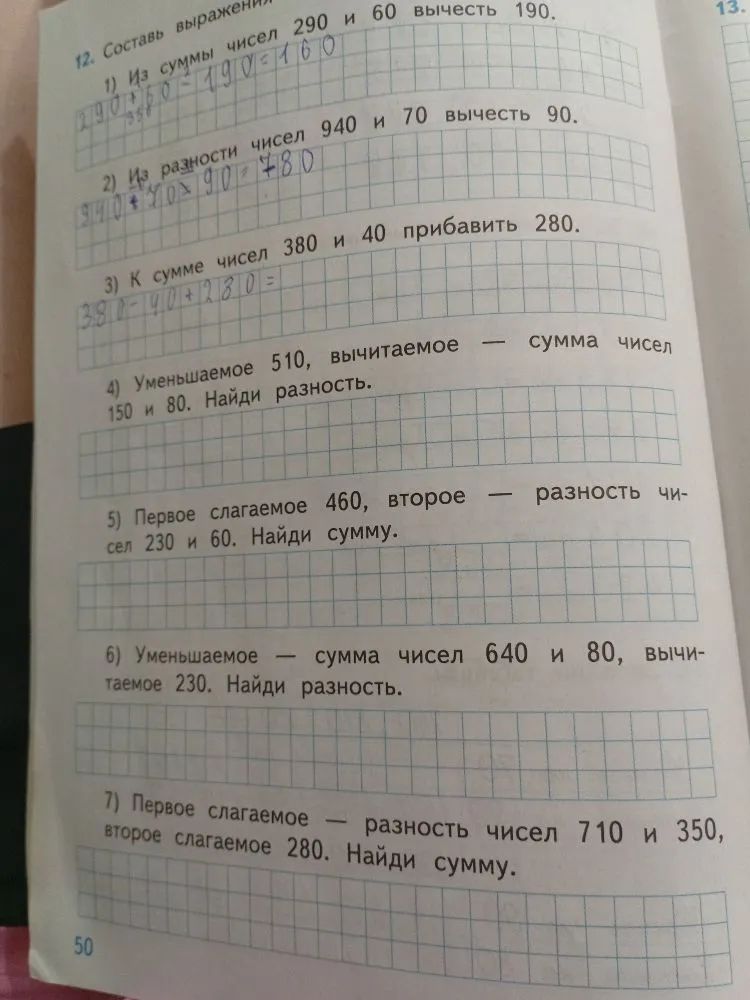 13.
12. Составь выражения
1) Из суммы чисел 290 и 60 вычесть 190.
290+60-190=160
350
2) Из разности чисел 940 и 70 вычесть 90.
= 780
3) К сумме чисел 380 и 40 прибавить 280.
380-40+280=
4) Уменьшаемое 510, вычитаемое — сумма чисел
150 и 80. Найди разность.
5) Первое слагаемое 460, второе — разность чи-
сел 230 и 60. Найди сумму.
6) Уменьшаемое — сумма чисел 640 и 80, вычи-
таемое 230. Найди разность.
7) Первое слагаемое — разность чисел 710 и 350,
второе слагаемое 280. Найди сумму.
50